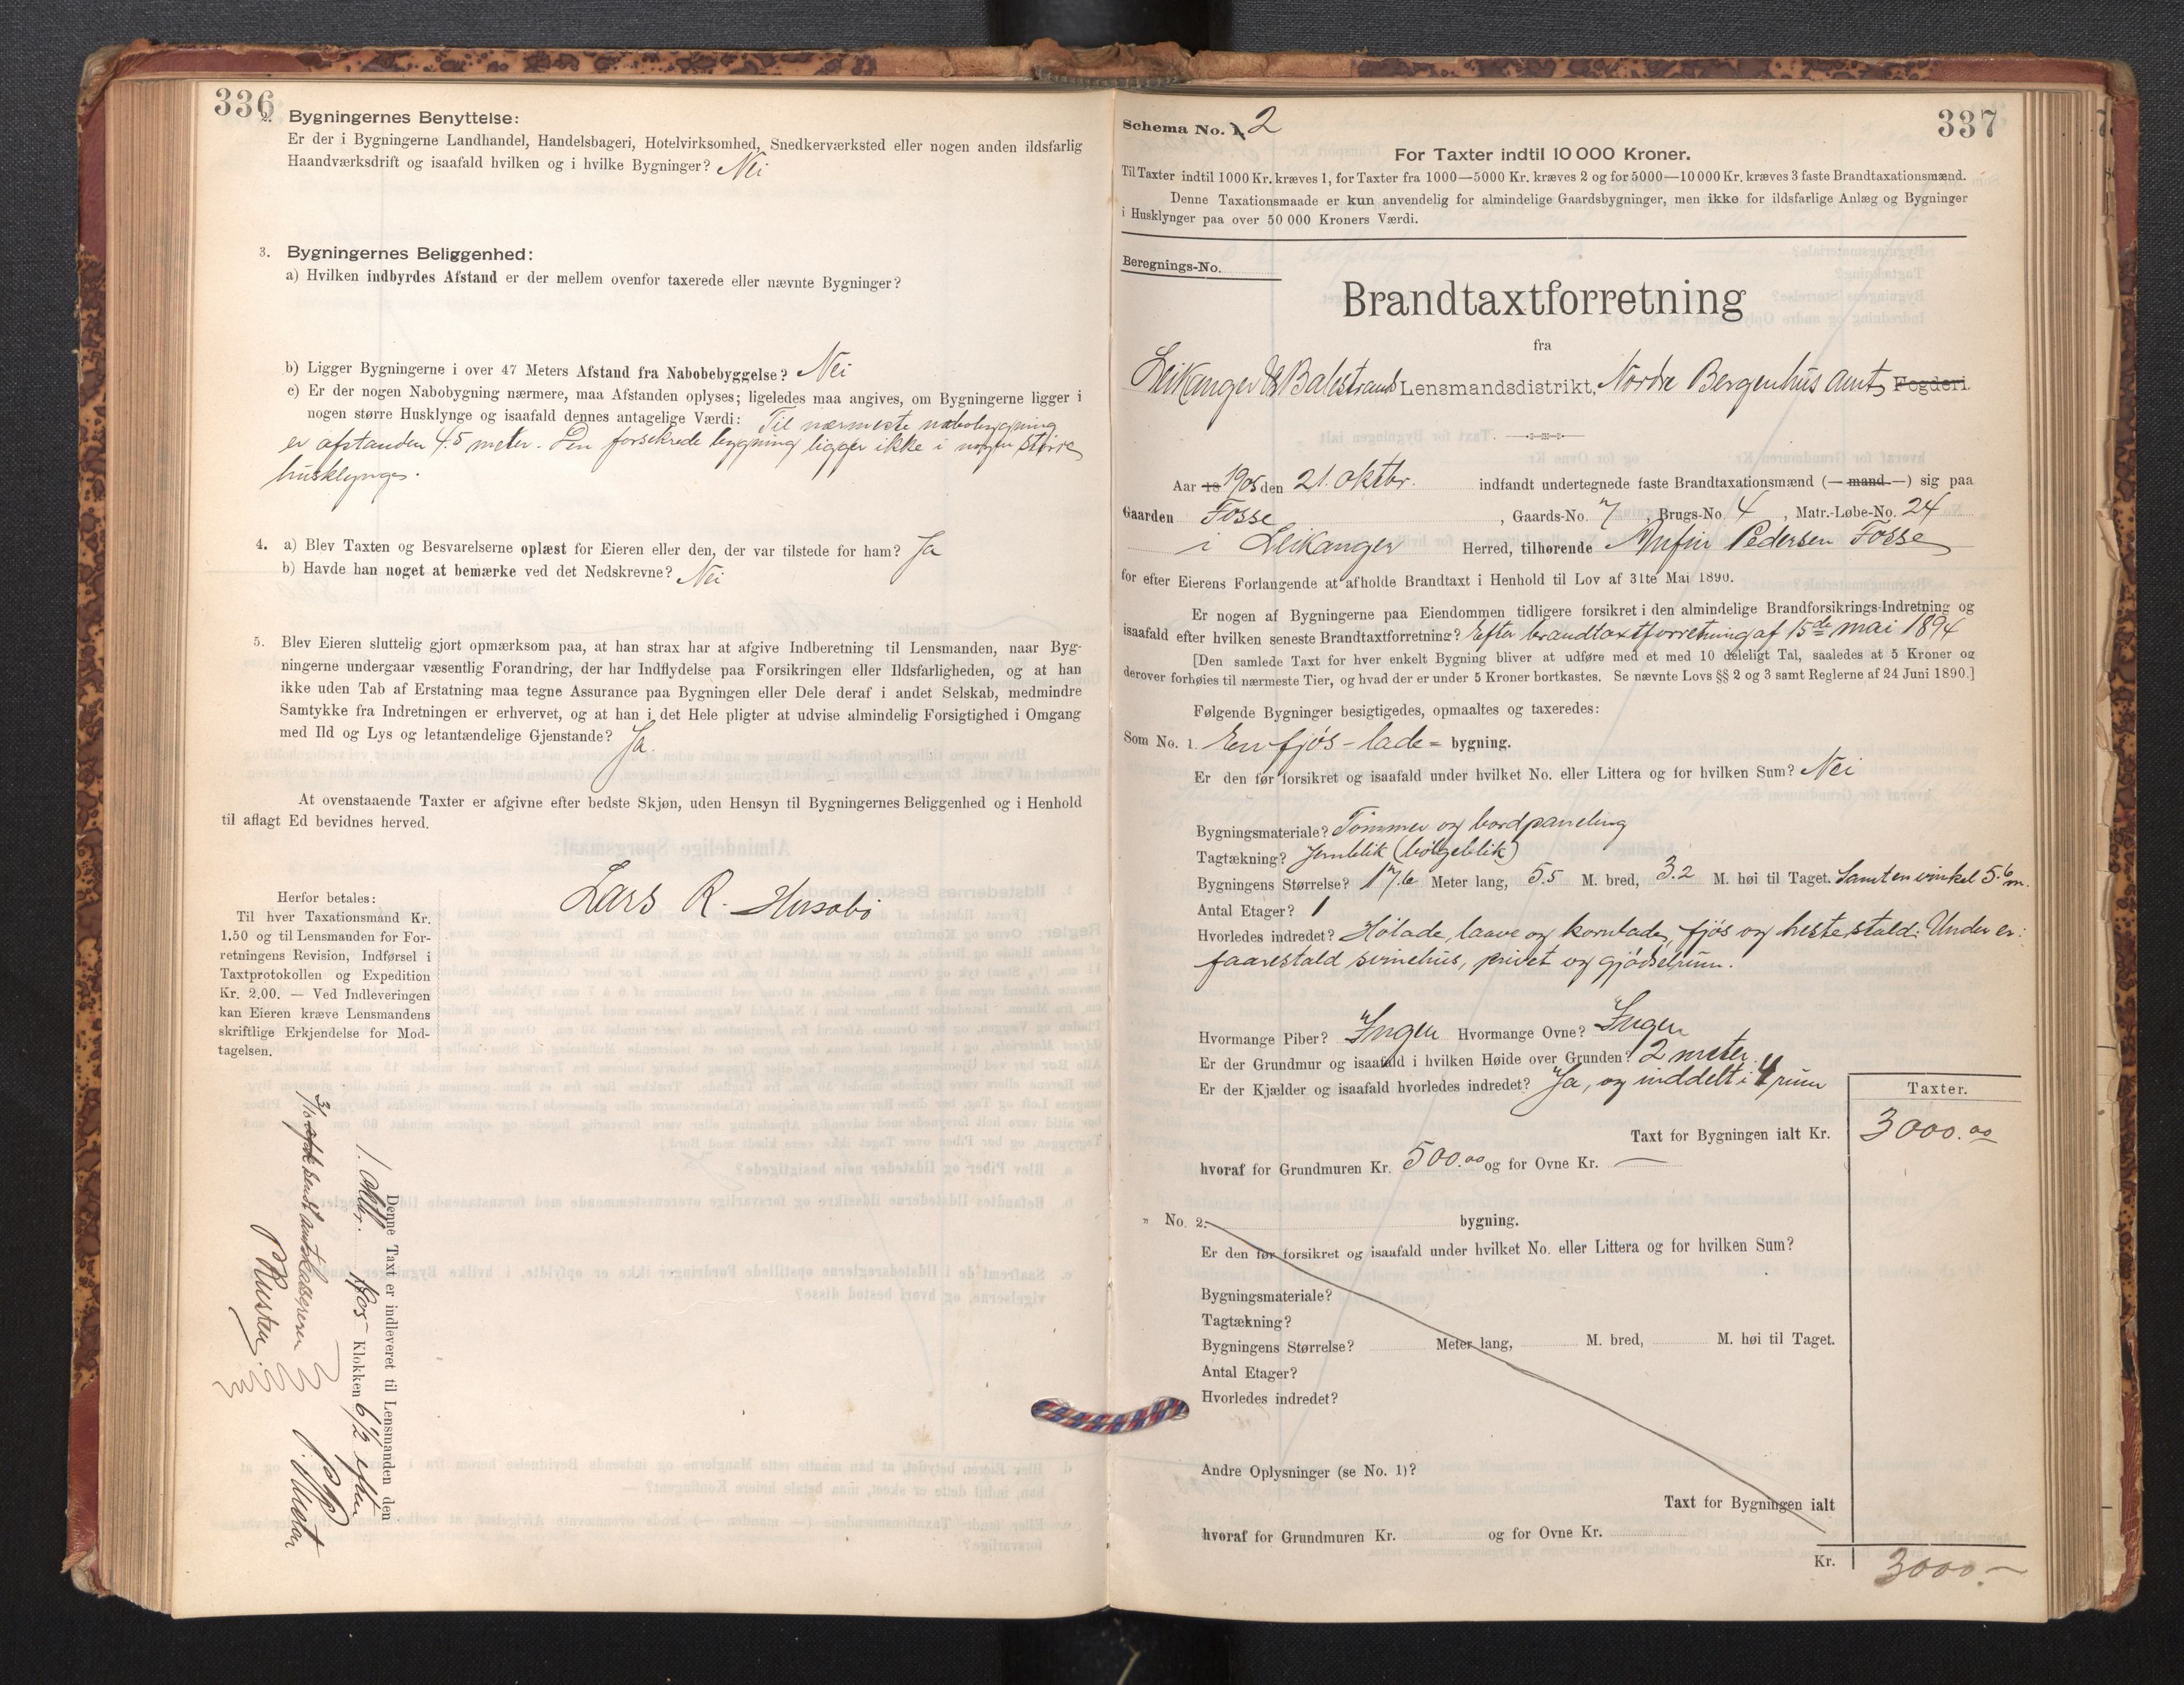 336
2. Bygningernes Benyttelse:
Er der i Bygningerne Landhandel, Handelsbageri, Hotelvirksomhed, Snedkerværksted eller nogen anden ildsfarlig
Haandværksdrift og isaafald hvilken og i hvilke Bygninger? Nei
3. Bygningernes Beliggenhed:
a) Hvilken indbyrdes Afstand er der mellem ovenfor taxerede eller nævnte Bygninger?
b) Ligger Bygningerne i over 47 Meters Afstand fra Nabobebyggelse? Nei
c) Er der nogen Nabobygning nærmere, maa Afstanden oplyses; ligeledes maa angives, om Bygningerne ligger i
nogen større Husklynge og isaafald dennes antagelige Værdi: Til nærmeste nabobygning
er afstanden 4.5 meter. Den forsekrede bygning ligger ikke i nogen større
husklynge.
4. a) Blev Taxten og Besvarelserne oplæst for Eieren eller den, der var tilstede for ham? Ja
b) Havde han noget at bemærke ved det Nedskrevne? Nei
5. Blev Eieren sluttelig gjort opmærksom paa, at han strax har at afgive Indberetning til Lensmanden, naar Byg-
ningerne undergaar væsentlig Forandring, der har Indflydelse paa Forsikringen eller Ildsfarligheden, og at han
ikke uden Tab af Erstatning maa tegne Assurance paa Bygningen eller Dele deraf i andet Selskab, medmindre
Samtykke fra Indretningen er erhvervet, og at han i det Hele pligter at udvise almindelig Forsigtighed i Omgang
med Ild og Lys og letantændelige Gjenstande? Ja.
At ovenstaaende Taxter er afgivne efter bedste Skjøn, uden Hensyn til Bygningernes Beliggenhed og i Henhold
til aflagt Ed bevidnes herved.
Lars R. Husabø
Herfor betales:
Til hver Taxationsmand Kr.
1.50 og til Lensmanden for For-
retningens Revision, Indførsel i
Taxtprotokollen og Expedition
Kr. 2.00. — Ved Indleveringen
kan Eieren kræve Lensmandens
skriftlige Erkjendelse for Mod-
tagelsen.
Denne Taxt er indleveret til Lensmanden den
1905 Klokken 6 1/2 efter
sendt amtskassereren
337
Schema No. 1. 2
For Taxter indtil 10 000 Kroner.
Til Taxter indtil 1000 Kr. kræves 1, for Taxter fra 1000—5000 Kr. kræves 2 og for 5000—10 000 Kr. kræves 3 faste Brandtaxationsmænd.
Denne Taxationsmaade er kun anvendelig for almindelige Gaardsbygninger, men ikke for ildsfarlige Anlæg og Bygninger
i Husklynger paa over 50 000 Kroners Værdi.
Beregnings-No.
Brandtaxtforretning
fra
Leikanger & Balestrand Lensmandsdistrikt, Nordre Bergenhus Amts Fogderi
Aar 18 1905 den 21. oktbr. indfandt undertegnede faste Brandtaxationsmænd (— mand —) sig paa
Gaarden Fosse, Gaards-No. 7, Brugs-No. 4, Matr.-Løbe-No. 24
i Leikanger Herred, tilhørende Anfin Pedersen Fosse
for efter Eierens Forlangende at afholde Brandtaxt i Henhold til Lov af 31te Mai 1890.
Er nogen af Bygningerne paa Eiendommen tidligere forsikret i den almindelige Brandforsikrings-Indretning og
isaafald efter hvilken seneste Brandtaxtforretning? Efter brandtaxtforretning af 15de mai 1894
[Den samlede Taxt for hver enkelt Bygning bliver at udføre med et med 10 deleligt Tal, saaledes at 5 Kroner og
derover forhøies til nærmeste Tier, og hvad der er under 5 Kroner bortkastes. Se nævnte Lovs §§ 2 og 3 samt Reglerne af 24 Juni 1890.]
Følgende Bygninger besigtigedes, opmaaltes og taxeredes:
Som No. 1. En fjøs - lade - bygning.
Er den før forsikret og isaafald under hvilket No. eller Littera og for hvilken Sum? Nei
Bygningsmateriale? Tømmer og bordpaneling
Tagtækning? Jernblik (bølgeblik)
Bygningens Størrelse? 17.6 Meter lang, 5.5 M. bred, 3.2 M. høi til Taget. Samt en vinkel 5.6 m.
Antal Etager? 1
Hvorledes indredet? Hølade, laave og kornlade, fjøs og hestestald. Under er:
faarestald svinehus, privet og gjødselrum.
Hvormange Piber? Ingen Hvormange Ovne? Ingen
Er der Grundmur og isaafald i hvilken Høide over Grunden? 2 meter.
Er der Kjælder og isaafald hvorledes indredet? Ja, og inddelt i 4 rum
Taxter.
Taxt for Bygningen ialt Kr. 3000.00
hvoraf for Grundmuren Kr. 500.00 og for Ovne Kr. —
" No. 2. bygning.
Er den før forsikret og isaafald under hvilket No. eller Littera og for hvilken Sum?
Bygningsmateriale?
Tagtækning?
Bygningens Størrelse? Meter lang, M. bred, M. høi til Taget.
Antal Etager?
Hvorledes indredet?
Andre Oplysninger (se No. 1)?
Taxt for Bygningen ialt
hvoraf for Grundmuren Kr. og for Ovne Kr.
Kr. 3000.-